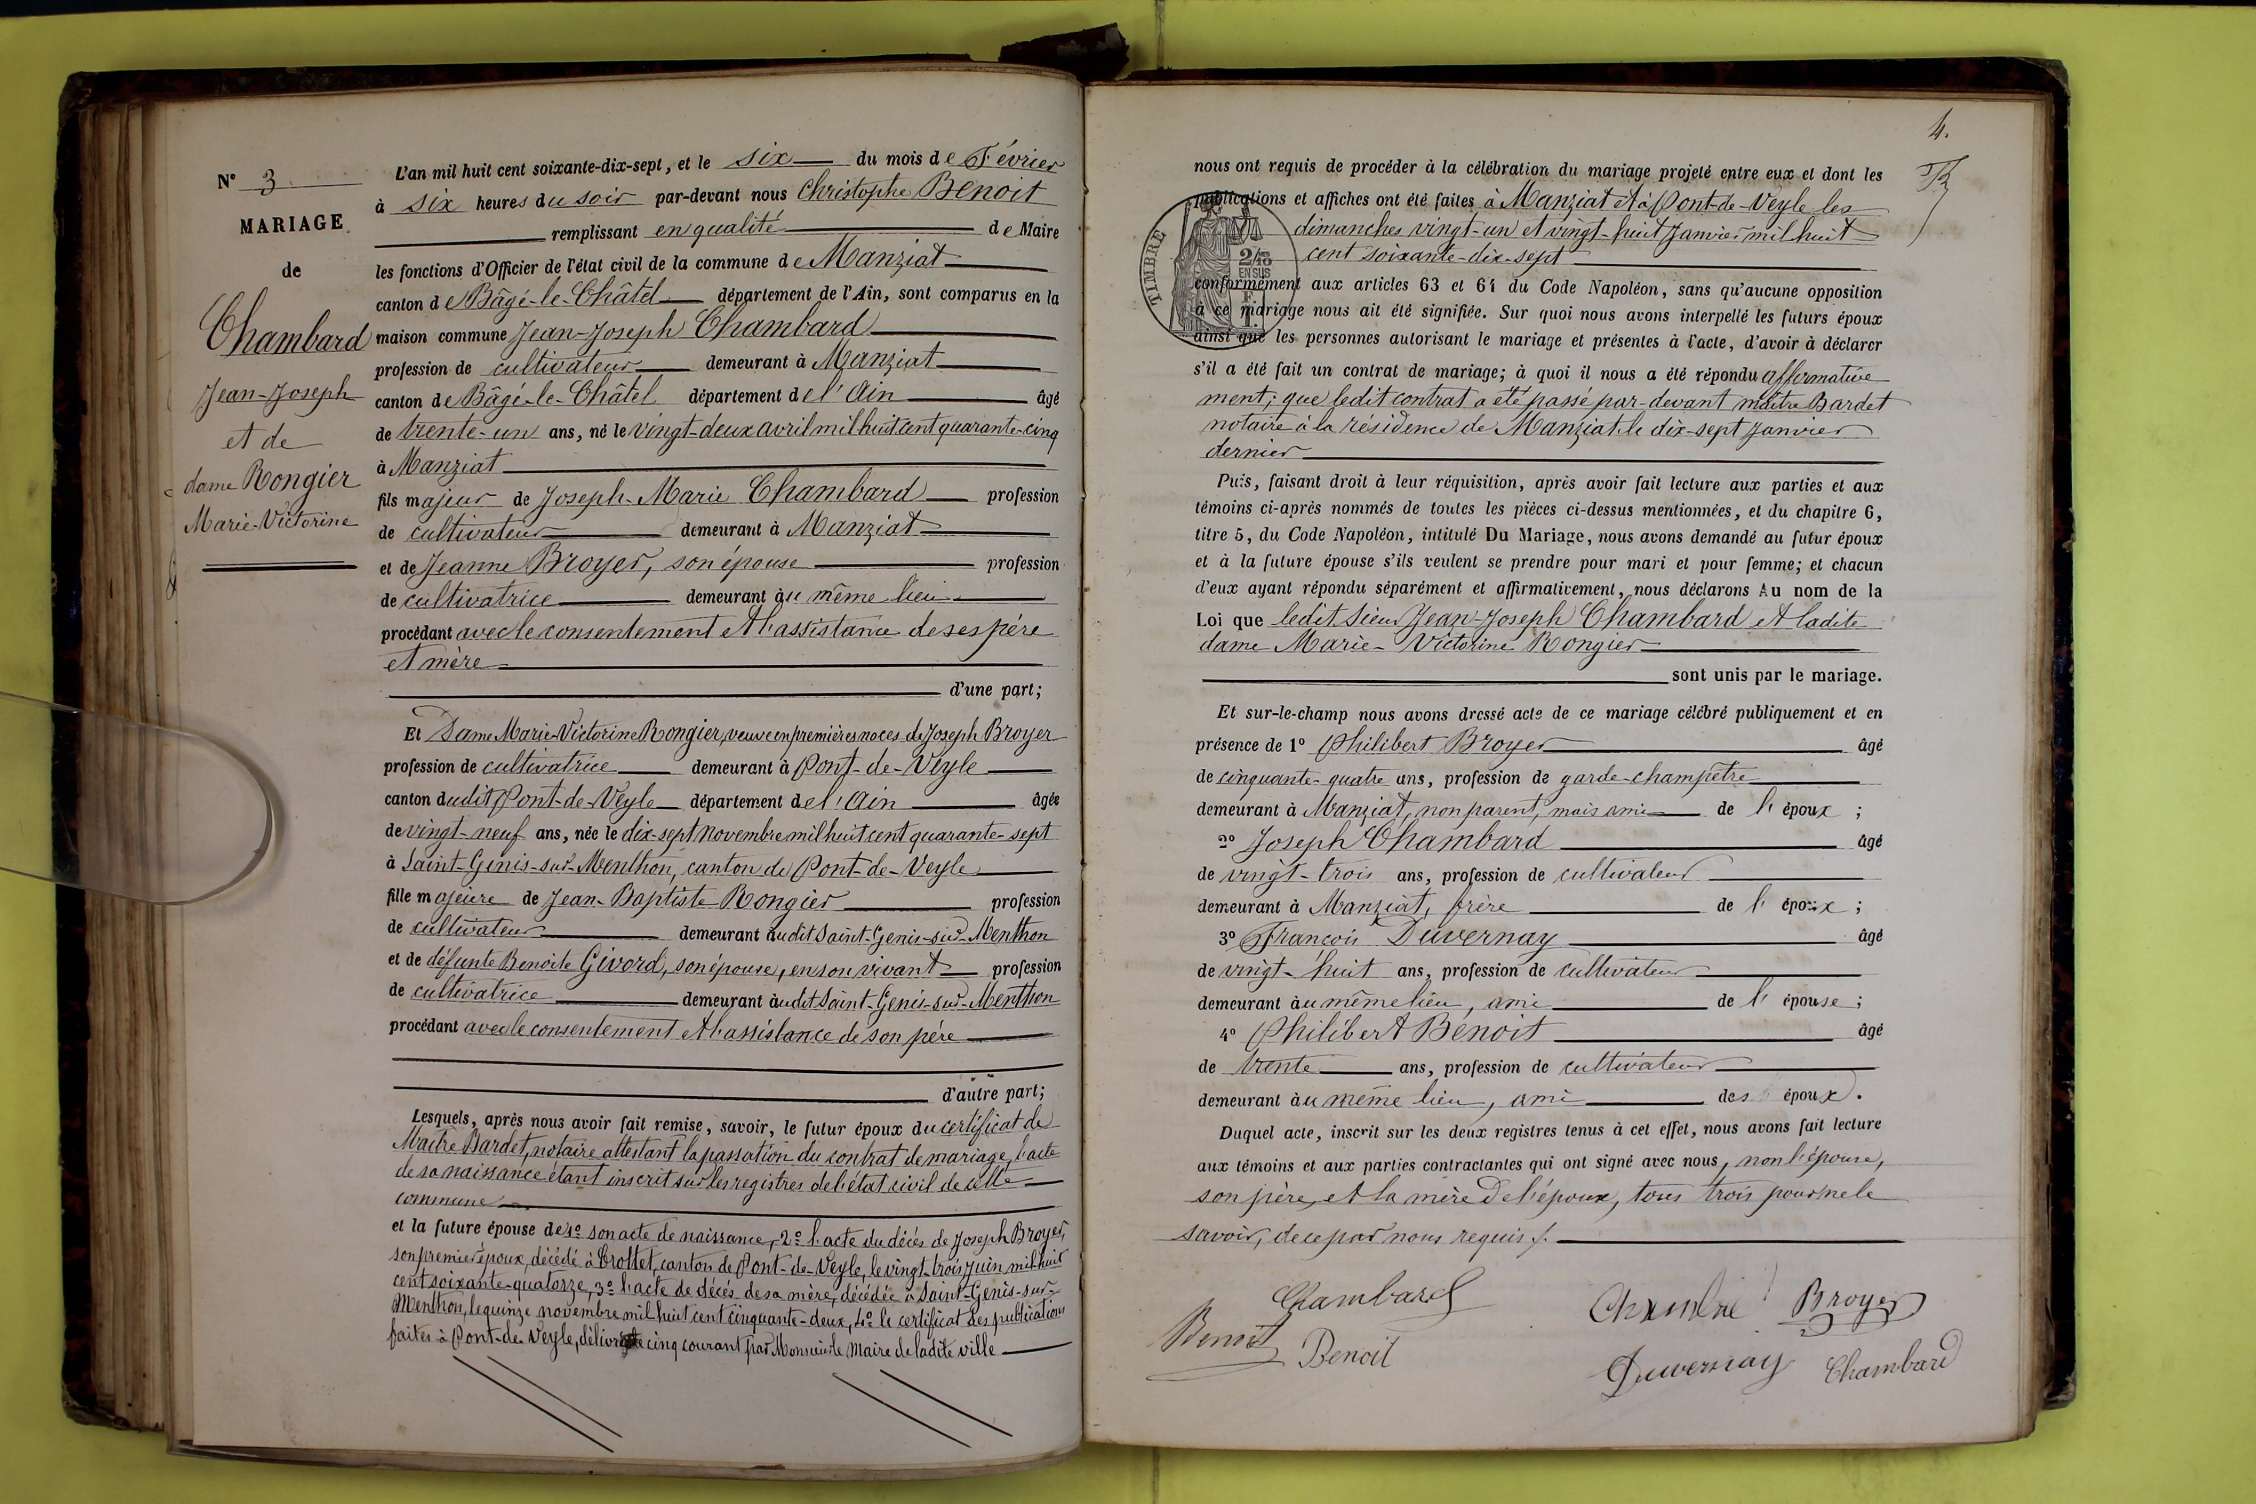 N° 3
MARIAGE
de
Chambard
Jean-Joseph
et de
dame Rongier
Marie-Victorine
L'an mil huit cent soixante-dix-sept, et le six du mois de Février
à six heures du soir par-devant nous Christophe Benoit
remplissant en qualité de Maire
les fonctions d'Officier de l'état civil de la commune de Manziat
canton de Bâgé-le-Châtel département de l'Ain, sont comparus en la
maison commune Jean-Joseph Chambard
profession de cultivateur demeurant à Manziat
canton de Bâgé-le-Châtel département de l'Ain âgé
de trente-un ans, né le vingt-deux avril mil huit cent quarante-cinq
à Manziat
fils majeur de Joseph-Marie Chambard profession
de cultivateur demeurant à Manziat
et de Jeanne Broyer, son épouse profession
de cultivatrice demeurant au même lieu
procédant avec le consentement et l'assistance de ses père
et mère
d'une part;
Et Dame Marie-Victorine Rongier, veuve en premières noces de Joseph Broyer
profession de cultivatrice demeurant à Pont-de-Veyle
canton dudit Pont-de-Veyle département de l'Ain âgée
de vingt-neuf ans, née le dix-sept novembre mil huit cent quarante-sept
à Saint-Genis-sur-Menthon, canton de Pont-de-Veyle
fille majeure de Jean-Baptiste Rongier profession
de cultivateur demeurant audit Saint-Genis-sur-Menthon
et de défunte Benoite Givord, son épouse, en son vivant profession
de cultivatrice demeurant audit Saint-Genis-sur-Menthon
procédant avec le consentement et l'assistance de son père
d'autre part;
Lesquels, après nous avoir fait remise, savoir, le futur époux du certificat de
Maître Bardet, notaire attestant la passation du contrat de mariage, l'acte
de sa naissance étant inscrit sur les registres de l'état civil de cette
commune
et la future épouse de 1° son acte de naissance, 2° l'acte du décès de Joseph Broyer,
son premier époux, décédé à Crottet, canton de Pont-de-Veyle, le vingt-trois Juin mil huit
cent soixante-quatorze, 3° l'acte de décès de sa mère, décédée à Saint-Genis-sur-
Menthon, le quinze novembre mil huit cent cinquante-deux, 4° le certificat des publications
faites à Pont-de-Veyle, délivré le cinq courant par Monsieur le Maire de ladite ville
4.
nous ont requis de procéder à la célébration du mariage projeté entre eux et dont les
publications et affiches ont été faites à Manziat et à Pont-de-Veyle les
dimanches vingt-un et vingt-huit Janvier mil huit
cent soixante-dix-sept
TIMBRE
2/10
EN SUS
conformément aux articles 63 et 64 du Code Napoléon, sans qu'aucune opposition
à ce mariage nous ait été signifiée. Sur quoi nous avons interpellé les futurs époux
ainsi que les personnes autorisant le mariage et présentes à l'acte, d'avoir à déclarer
s'il a été fait un contrat de mariage; à quoi il nous a été répondu affirmative
ment; que ledit contrat a été passé par-devant maître Bardet
notaire à la résidence de Manziat le dix-sept Janvier
dernier
Puis, faisant droit à leur réquisition, après avoir fait lecture aux parties et aux
témoins ci-après nommés de toutes les pièces ci-dessus mentionnées, et du chapitre 6,
titre 5, du Code Napoléon, intitulé Du Mariage, nous avons demandé au futur époux
et à la future épouse s'ils veulent se prendre pour mari et pour femme; et chacun
d'eux ayant répondu séparément et affirmativement, nous déclarons Au nom de la
Loi que ledit sieur Jean-Joseph Chambard et ladite
dame Marie-Victorine Rongier
sont unis par le mariage.
Et sur-le-champ nous avons dressé acte de ce mariage célébré publiquement et en
présence de 1° Philibert Broyer âgé
de cinquante-quatre ans, profession de garde-champêtre
demeurant à Manziat, non parent, mais ami de l'époux ;
2° Joseph Chambard âgé
de vingt-trois ans, profession de cultivateur
demeurant à Manziat, frère de l'époux ;
3° François Duvernay âgé
de vingt-huit ans, profession de cultivateur
demeurant au même lieu, ami de l'épouse ;
4° Philibert Benoit âgé
de trente ans, profession de cultivateur
demeurant au même lieu, ami des époux.
Duquel acte, inscrit sur les deux registres tenus à cet effet, nous avons fait lecture
aux témoins et aux parties contractantes qui ont signé avec nous, non l'épouse,
son père, et la mère de l'époux, tous trois pour ne le
savoir, de ce par nous requis /.
Chambard Broyer
Benoit Benoit
Duvernay Chambard